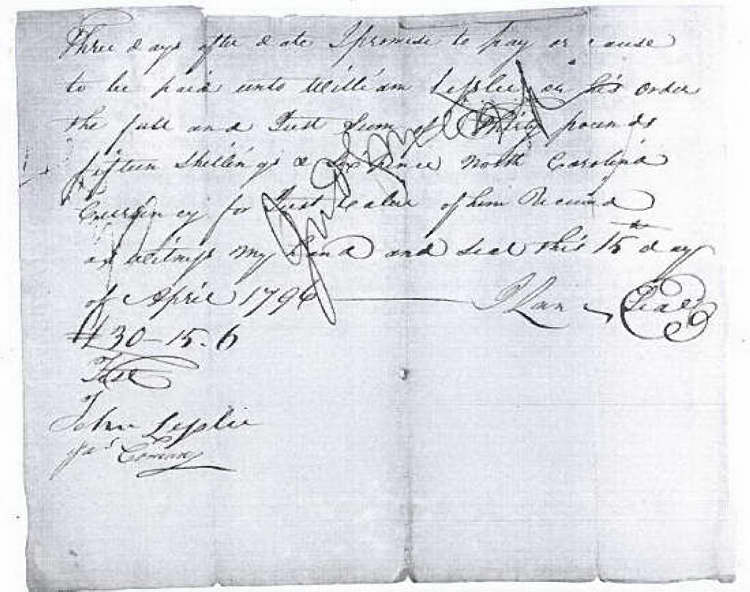 Three days after date I promise to pay or cause
to be paid unto William Leslie or his order
the full and Just Sum of thirty pounds
fifteen Shillings & Six pence North Carolina
Currency for Just value of him Received
as witness my hand and Seal this 15th day
of April 1796 Seal
£30-15.6
Test
John Leslie
Jas Conway
Judgment